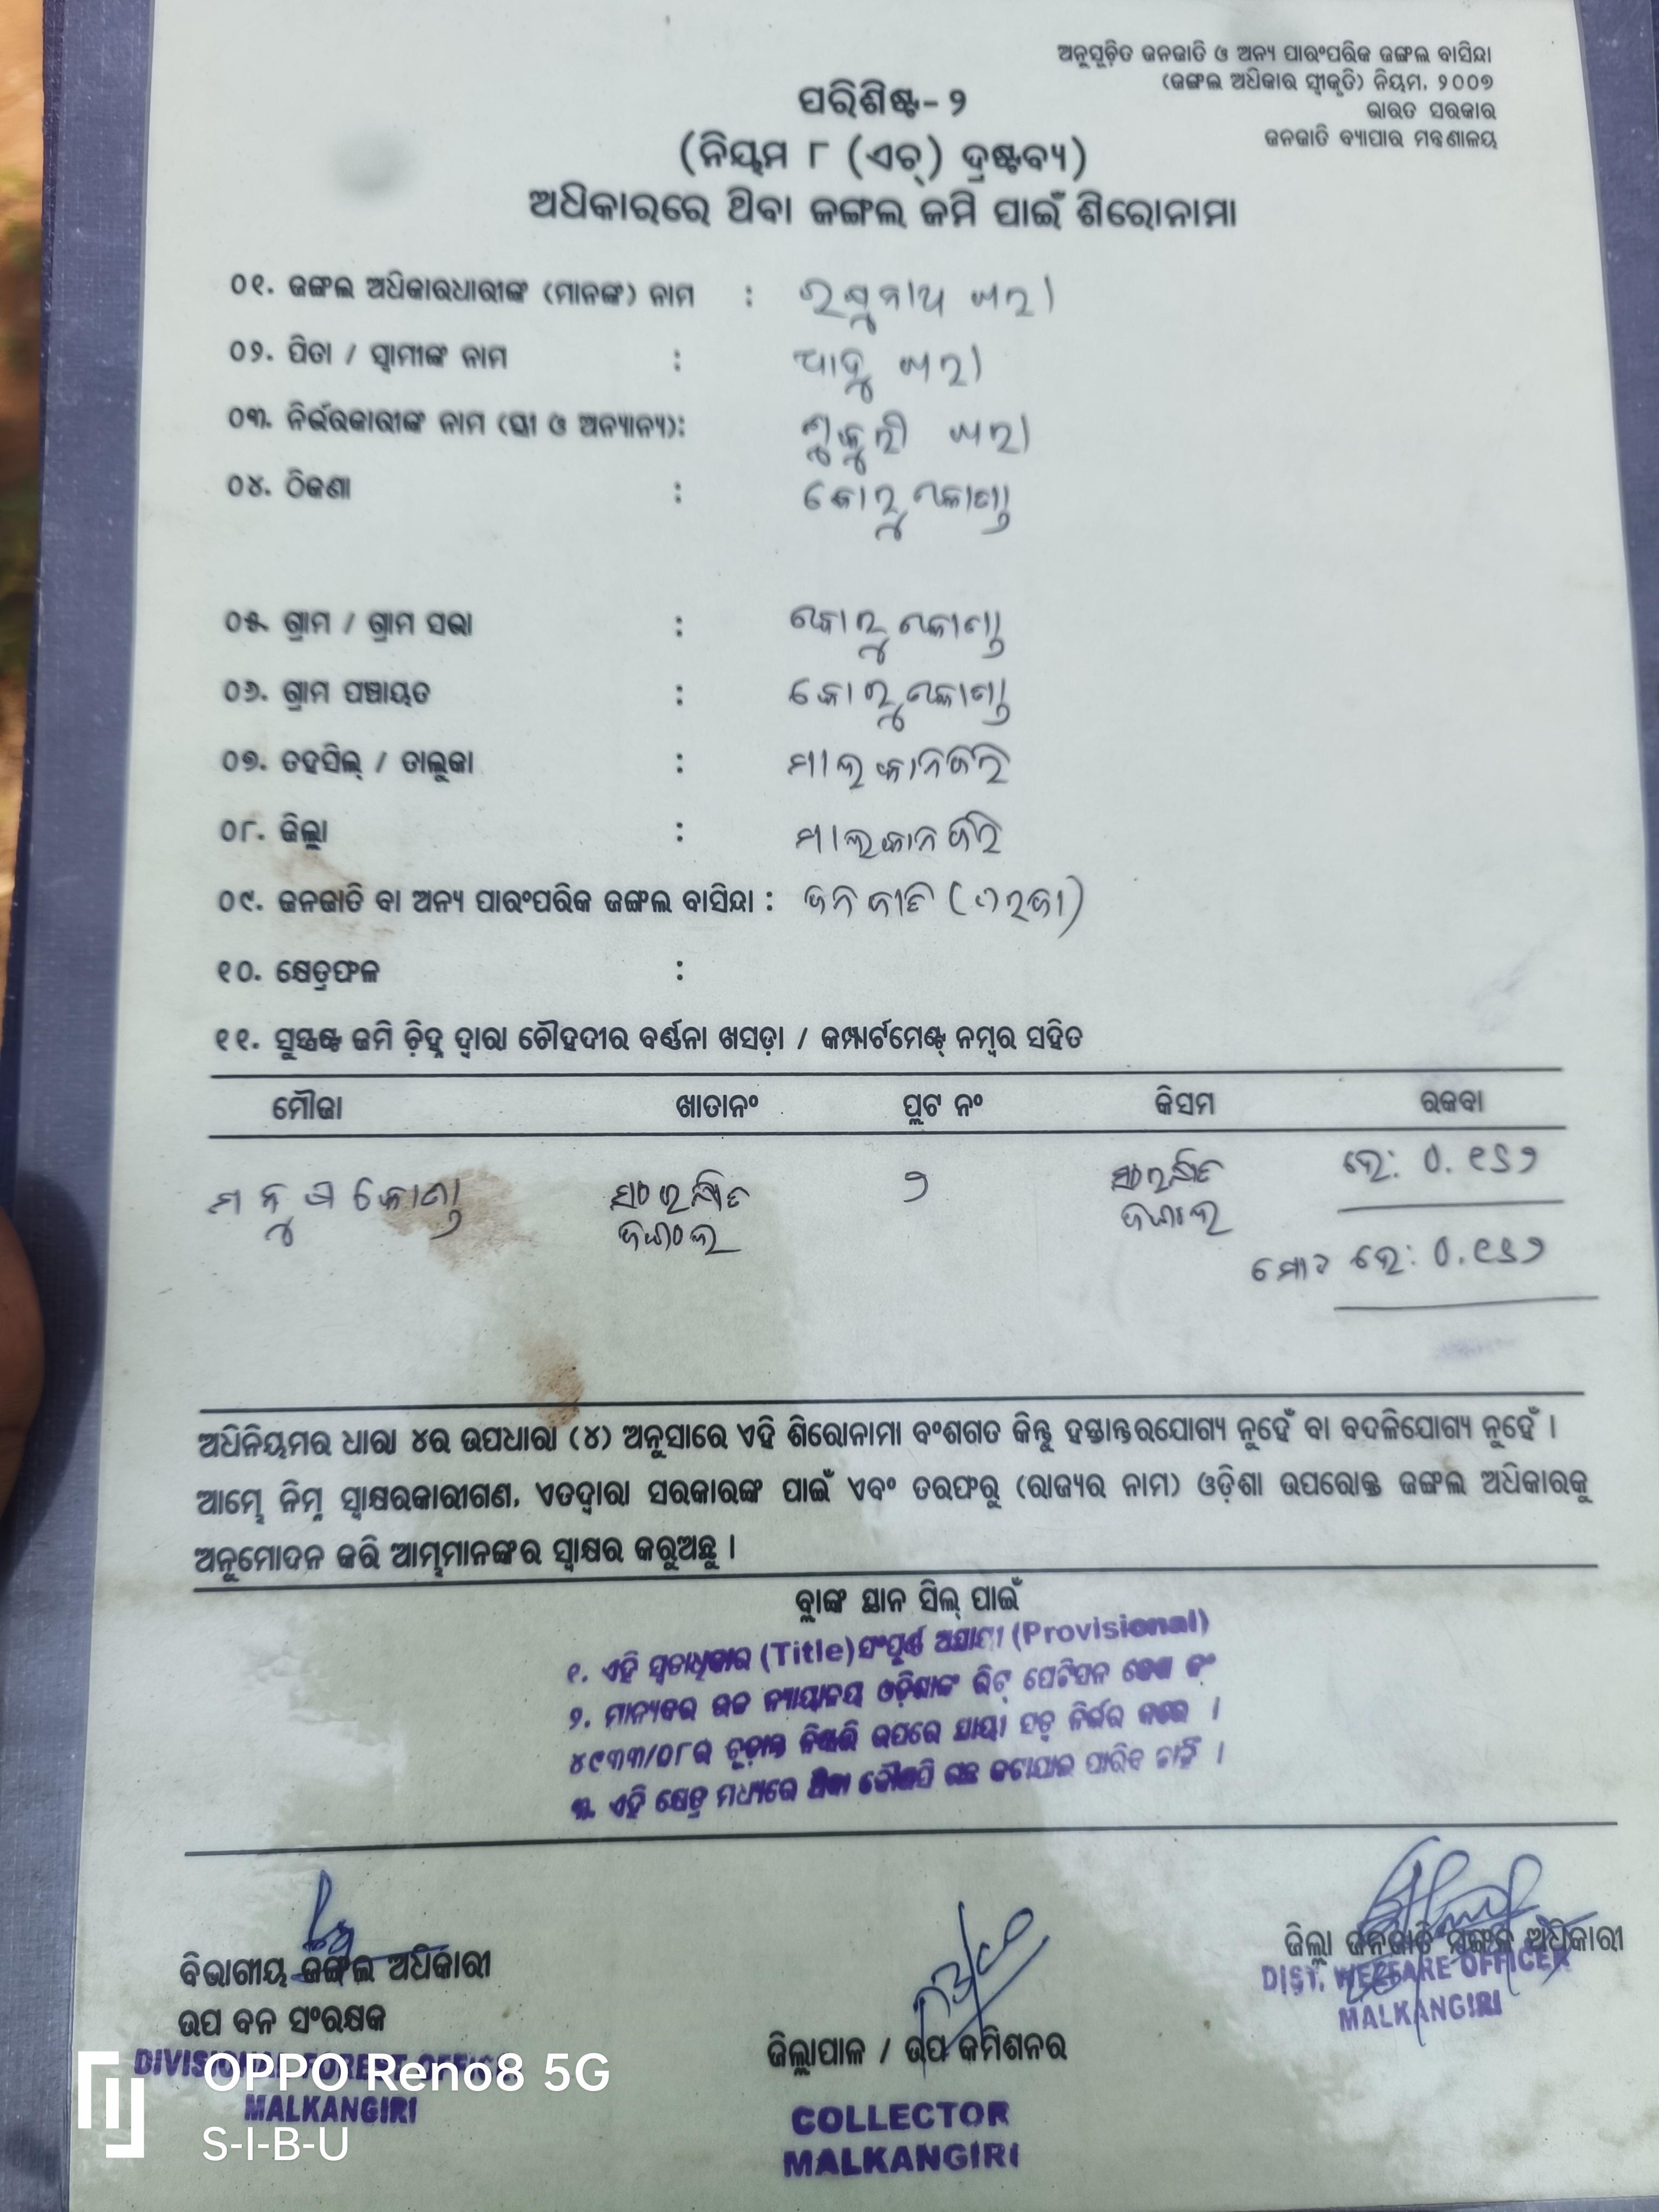 ଅନୁସୂଚିତ ଜନଜାତି ଓ ଅନ୍ୟ ପାରଂପରିକ ଜଙ୍ଗଲ ବାସିନ୍ଦା
(ଜଙ୍ଗଲ ଅଧିକାର ସ୍ୱୀକୃତି) ନିୟମ, ୨୦୦୭
ଭାରତ ସରକାର
ଜନଜାତି ବ୍ୟାପାର ମନ୍ତ୍ରଣାଳୟ
ପରିଶିଷ୍ଟ- ୨
(ନିୟମ ୮ (ଏଚ୍) ଦ୍ରଷ୍ଟବ୍ୟ)
ଅଧିକାରରେ ଥିବା ଜଙ୍ଗଲ ଜମି ପାଇଁ ଶିରୋନାମା
୦୧. ଜଙ୍ଗଲ ଅଧିକାରଧାରୀଙ୍କ (ମାନଙ୍କ) ନାମ :
୦୨. ପିତା / ସ୍ୱାମୀଙ୍କ ନାମ :
୦୩. ନିର୍ଭରକାରୀଙ୍କ ନାମ (ସ୍ତ୍ରୀ ଓ ଅନ୍ୟାନ୍ୟ):
୦୪. ଠିକଣା : କୋରୁକୋଣ୍ଡା
୦୫. ଗ୍ରାମ / ଗ୍ରାମ ସଭା : କୋରୁକୋଣ୍ଡା
୦୬. ଗ୍ରାମ ପଞ୍ଚାୟତ : କୋରୁକୋଣ୍ଡା
୦୭. ତହସିଲ୍ / ତାଲୁକା : ମାଲକାନଗିରି
୦୮. ଜିଲ୍ଲା : ମାଲକାନଗିରି
୦୯. ଜନଜାତି ବା ଅନ୍ୟ ପାରଂପରିକ ଜଙ୍ଗଲ ବାସିନ୍ଦା : ଜନଜାତି
୧୦. କ୍ଷେତ୍ରଫଳ :
୧୧. ସୁସ୍ପଷ୍ଟ ଜମି ଚିହ୍ନ ଦ୍ୱାରା ଚୌହଦୀର ବର୍ଣ୍ଣନା ଖସଡ଼ା / କମ୍ପାର୍ଟମେଣ୍ଟ୍ ନମ୍ବର ସହିତ
ମୌଜା ଖାତାନଂ ପ୍ଲଟ ନଂ କିସମ ରକବା
ସଂରକ୍ଷିତ ୨ ସଂରକ୍ଷିତ ରେ: ୦.୧୬୨
ଜଙ୍ଗଲ ଜଙ୍ଗଲ
ମୋଟ ରେ: ୦.୧୬୨
ଅଧିନିୟମର ଧାରା ୪ର ଉପଧାରା (୪) ଅନୁସାରେ ଏହି ଶିରୋନାମା ବଂଶଗତ କିନ୍ତୁ ହସ୍ତାନ୍ତରଯୋଗ୍ୟ ନୁହେଁ ବା ବଦଳିଯୋଗ୍ୟ ନୁହେଁ ।
ଆମ୍ଭେ ନିମ୍ନ ସ୍ୱାକ୍ଷରକାରୀଗଣ, ଏତଦ୍ୱାରା ସରକାରଙ୍କ ପାଇଁ ଏବଂ ତରଫରୁ (ରାଜ୍ୟର ନାମ) ଓଡ଼ିଶା ଉପରୋକ୍ତ ଜଙ୍ଗଲ ଅଧିକାରକୁ
ଅନୁମୋଦନ କରି ଆମ୍ଭମାନଙ୍କର ସ୍ୱାକ୍ଷର କରୁଅଛୁ ।
ବ୍ଲାଙ୍କ ସ୍ଥାନ ସିଲ୍ ପାଇଁ
୧. ଏହି (Title) ସଂପୂର୍ଣ୍ଣ (Provisional)
୨. ମାନ୍ୟବର ଉଚ୍ଚ ନ୍ୟାୟାଳୟ ରିଟ୍ ପେଟିସନ
୪୯୩୩/୦୮ର ଉପରେ ନିର୍ଭର କରେ ।
୩. ଏହି କ୍ଷେତ୍ର ମଧ୍ୟରେ ଥିବା କୌଣସି ଗଛ କଟାଯାଇ ପାରିବ ନାହିଁ ।
ବିଭାଗୀୟ ଜଙ୍ଗଲ ଅଧିକାରୀ
ଉପ ବନ ସଂରକ୍ଷକ
DIVISIONAL FOREST OFFICER
MALKANGIRI
ଜିଲ୍ଲାପାଳ / ଉପ କମିଶନର
COLLECTOR
MALKANGIRI
ଜିଲ୍ଲା ଜନଜାତି ମଙ୍ଗଳ ଅଧିକାରୀ
DIST. WELFARE OFFICER
MALKANGIRI
OPPO Reno8 5G
S-I-B-U